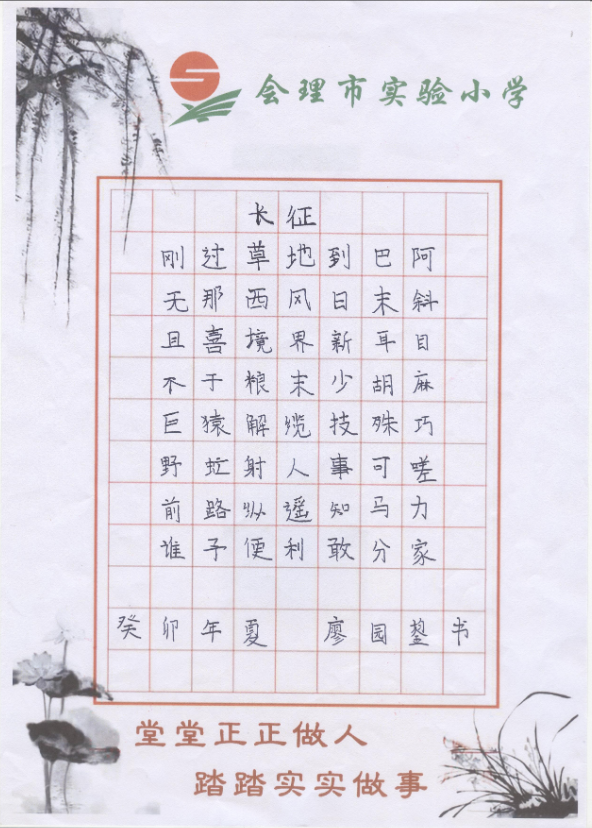 会理市实验小学
长征
刚过草地到巴阿
无那西风日末斜
且喜境界新耳目
不于粮末少胡麻
巨猿解缆技殊巧
野虻射人事可嗟
前路纵遥知马力
谁予便利敢分家
癸卯年夏 廖园蛰书
堂堂正正做人
踏踏实实做事